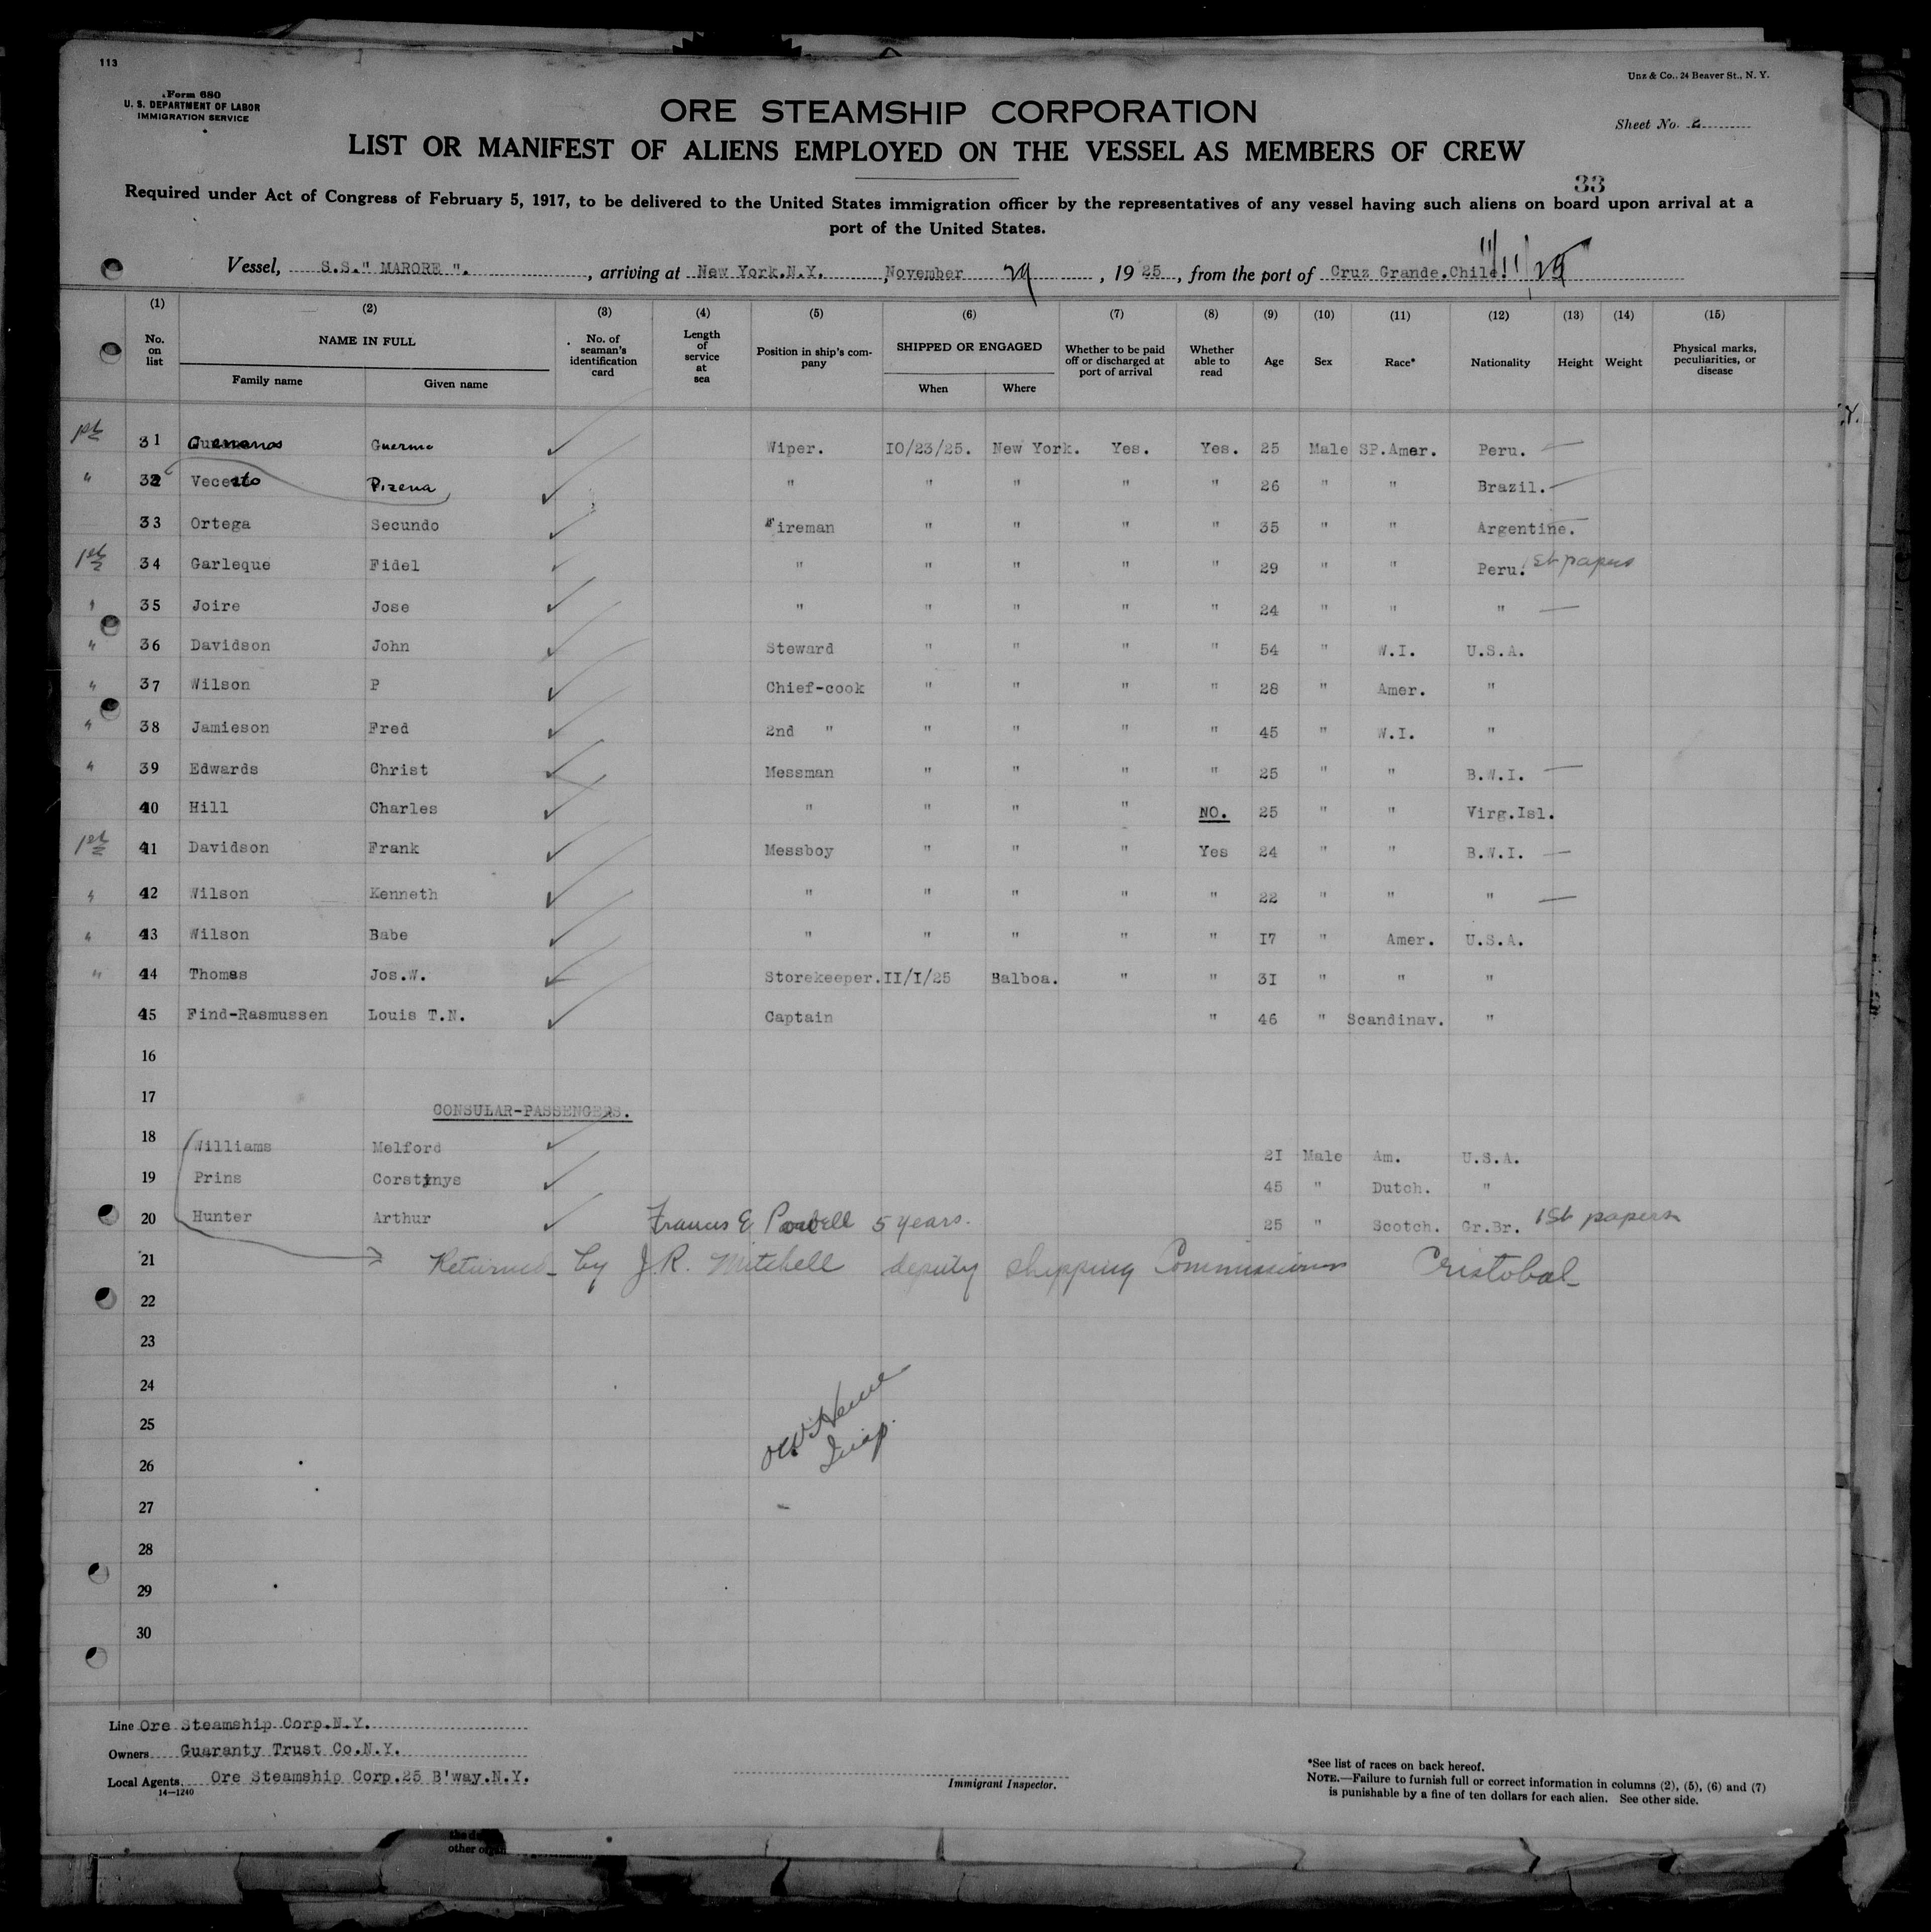 113
Form 680
U. S. DEPARTMENT OF LABOR
IMMIGRATION SERVICE
Unz & Co., 24 Beaver St., N. Y.
ORE STEAMSHIP CORPORATION
Sheet No. 2
LIST OR MANIFEST OF ALIENS EMPLOYED ON THE VESSEL AS MEMBERS OF CREW
33
Required under Act of Congress of February 5, 1917, to be delivered to the United States immigration officer by the representatives of any vessel having such aliens on board upon arrival at a
port of the United States.
Vessel, S.S." MARORE ". , arriving at New York.N.Y. , November , 19 25 , from the port of Cruz Grande.Chile.
(1) (2) (3) (4) (5) (6) (7) (8) (9) (10) (11) (12) (13) (14) (15)
No. on list NAME IN FULL No. of seaman's identification card Length of service at sea Position in ship's company SHIPPED OR ENGAGED Whether to be paid off or discharged at port of arrival Whether able to read Age Sex Race* Nationality Height Weight Physical marks, peculiarities, or disease
Family name Given name When Where
31 Guermo Wiper. 10/23/25. New York. Yes. Yes. 25 Male SP.Amer. Peru.
" 32 Pizena " " " " " 26 " " Brazil.
33 Ortega Secundo Fireman " " " " 35 " " Argentine.
1st 34 Garleque Fidel " " " " " 29 " " Peru. 1st papers
" 35 Joire Jose " " " " " 24 " " "
" 36 Davidson John Steward " " " " 54 " W.I. U.S.A.
" 37 Wilson P Chief-cook " " " " 28 " Amer. "
" 38 Jamieson Fred 2nd " " " " " 45 " W.I. "
" 39 Edwards Christ Messman " " " " 25 " " B.W.I.
40 Hill Charles " " " " NO. 25 " " Virg.Isl.
1st 41 Davidson Frank Messboy " " " Yes 24 " " B.W.I.
" 42 Wilson Kenneth " " " " " 22 " " "
" 43 Wilson Babe " " " " " 17 " Amer. U.S.A.
" 44 Thomas Jos.W. Storekeeper. II/I/25 Balboa. " " 3I " " "
45 Find-Rasmussen Louis T.N. Captain " 46 " Scandinav. "
16
17 CONSULAR-PASSENGERS.
18 Williams Melford 2I Male Am. U.S.A.
19 Prins Corstinys 45 " Dutch. "
20 Hunter Arthur Francis E. Powell 5 years. 25 " Scotch. Gr.Br. 1st papers
21 Returned by J.R. Mitchell deputy shipping Commissioner Cristobal
22
23
24
25
26
27
28
29
30
Line Ore Steamship Corp.N.Y.
Owners Guaranty Trust Co.N.Y.
Local Agents Ore Steamship Corp.25 B'way.N.Y.
14—1240
Immigrant Inspector.
*See list of races on back hereof.
NOTE.—Failure to furnish full or correct information in columns (2), (5), (6) and (7)
is punishable by a fine of ten dollars for each alien. See other side.